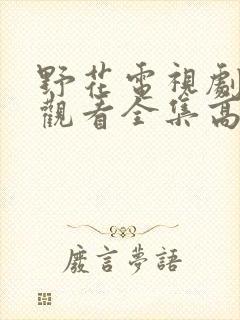 野花電視劇
觀看全集高
廢言夢語